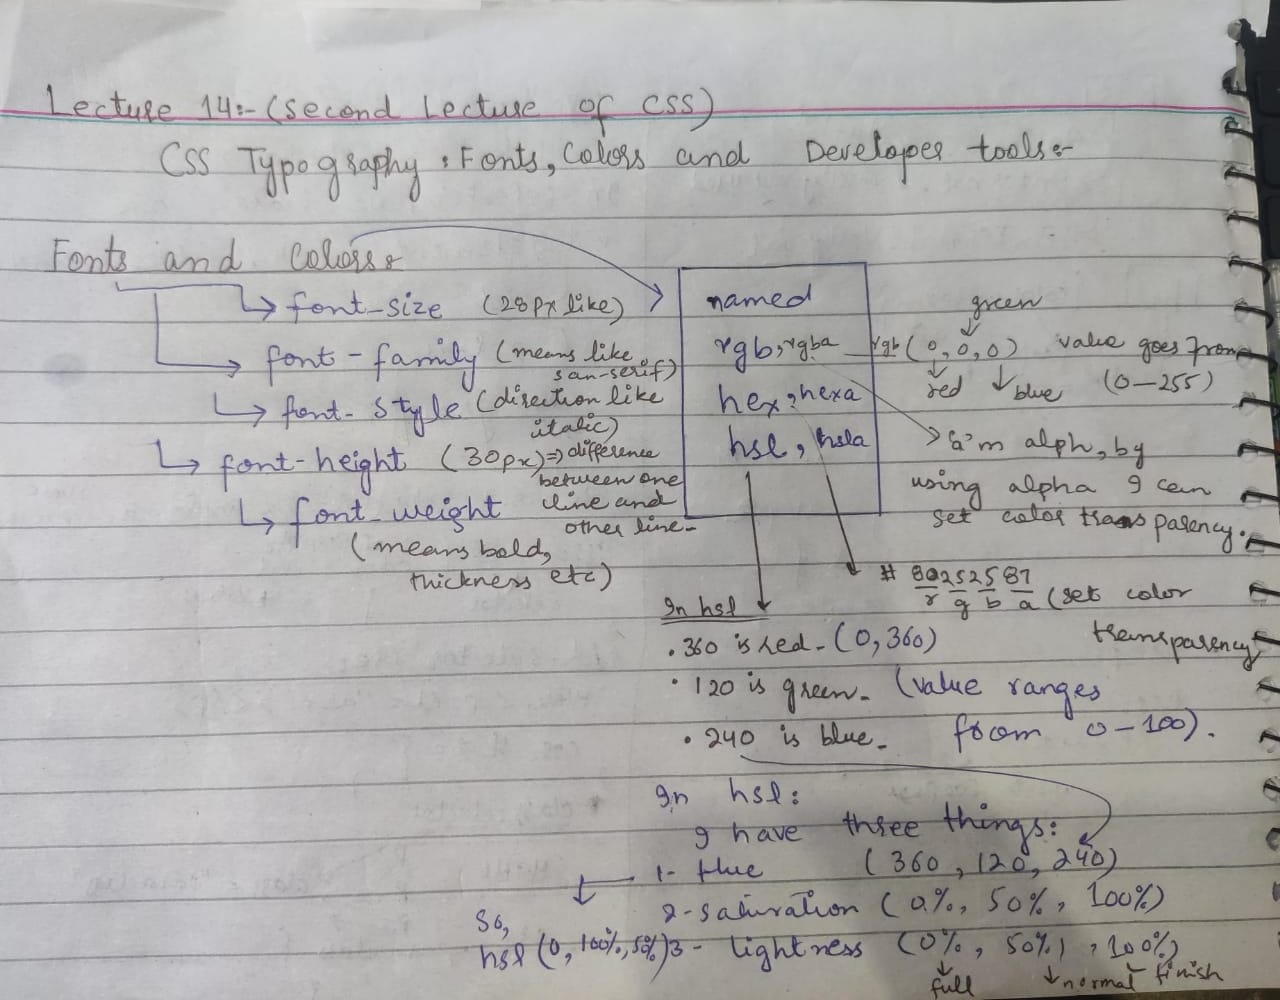 Lecture 14:- (Second Lecture of CSS)
CSS Typography : Fonts, Colors and Developer tools:-
Fonts and Colors:
font-size (28px like)
font-family (means like
san-serif)
font-style (direction like
italic)
font-height (30px) => difference
between one
line and
other line-
font-weight
(means bold,
thickness etc)
named
rgb, rgba
hex, hexa
hsl, hsla
green
rgb (0,0,0) value goes from
red blue (0-255)
'a'm alph, by
using alpha I can
set color transparency.
# 80252587
r g b a (set color
transparency
In hsl
. 360 is red - (0, 360)
. 120 is green - (value ranges
. 240 is blue - from 0-100).
In hsl:
I have three things:
1- Hue (360, 120, 240)
2- saturation (0%, 50%, 100%)
So,
hsl (0, 100%, 50%) 3- lightness (0%, 50%, 100%)
full normal finish